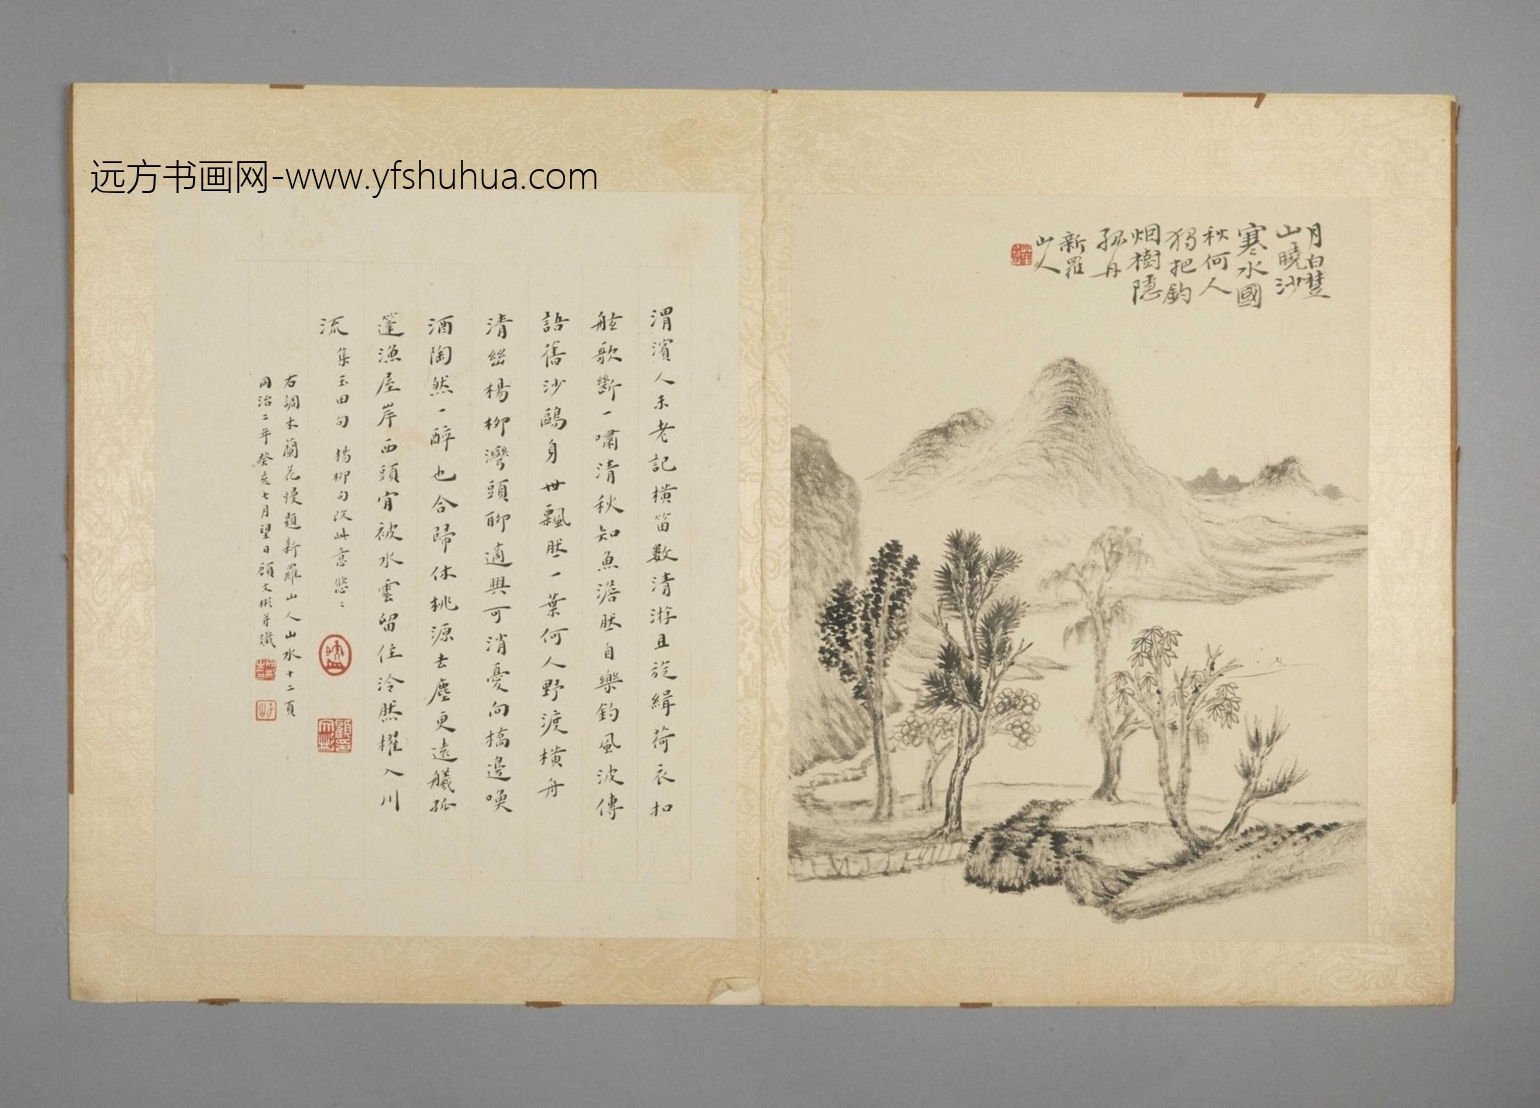 远方书画网-www.yfshuhua.com
月白雙
山曉沙
寒水國
秋何人
獨把釣
烟樹隱
孤舟
新羅
山人
渭濱人未老記橫笛數清游且旋緝荷衣扣
舷歌斷一嘯清秋知魚澹然自樂釣風波傳
語舊沙鷗身世飄然一葉何人野渡橫舟
清幽楊柳灣頭聊適興可消憂向橋邊喚
酒陶然一醉也合歸休桃源去塵更遠艤孤
篷漁屋岸西頭肯被水雲留住泠然櫂入川
流
集玉田句 楊柳句改此意悠悠
右調木蘭花慢題新羅山人山水十二頁
同治二年癸亥七月望日顧文彬并識